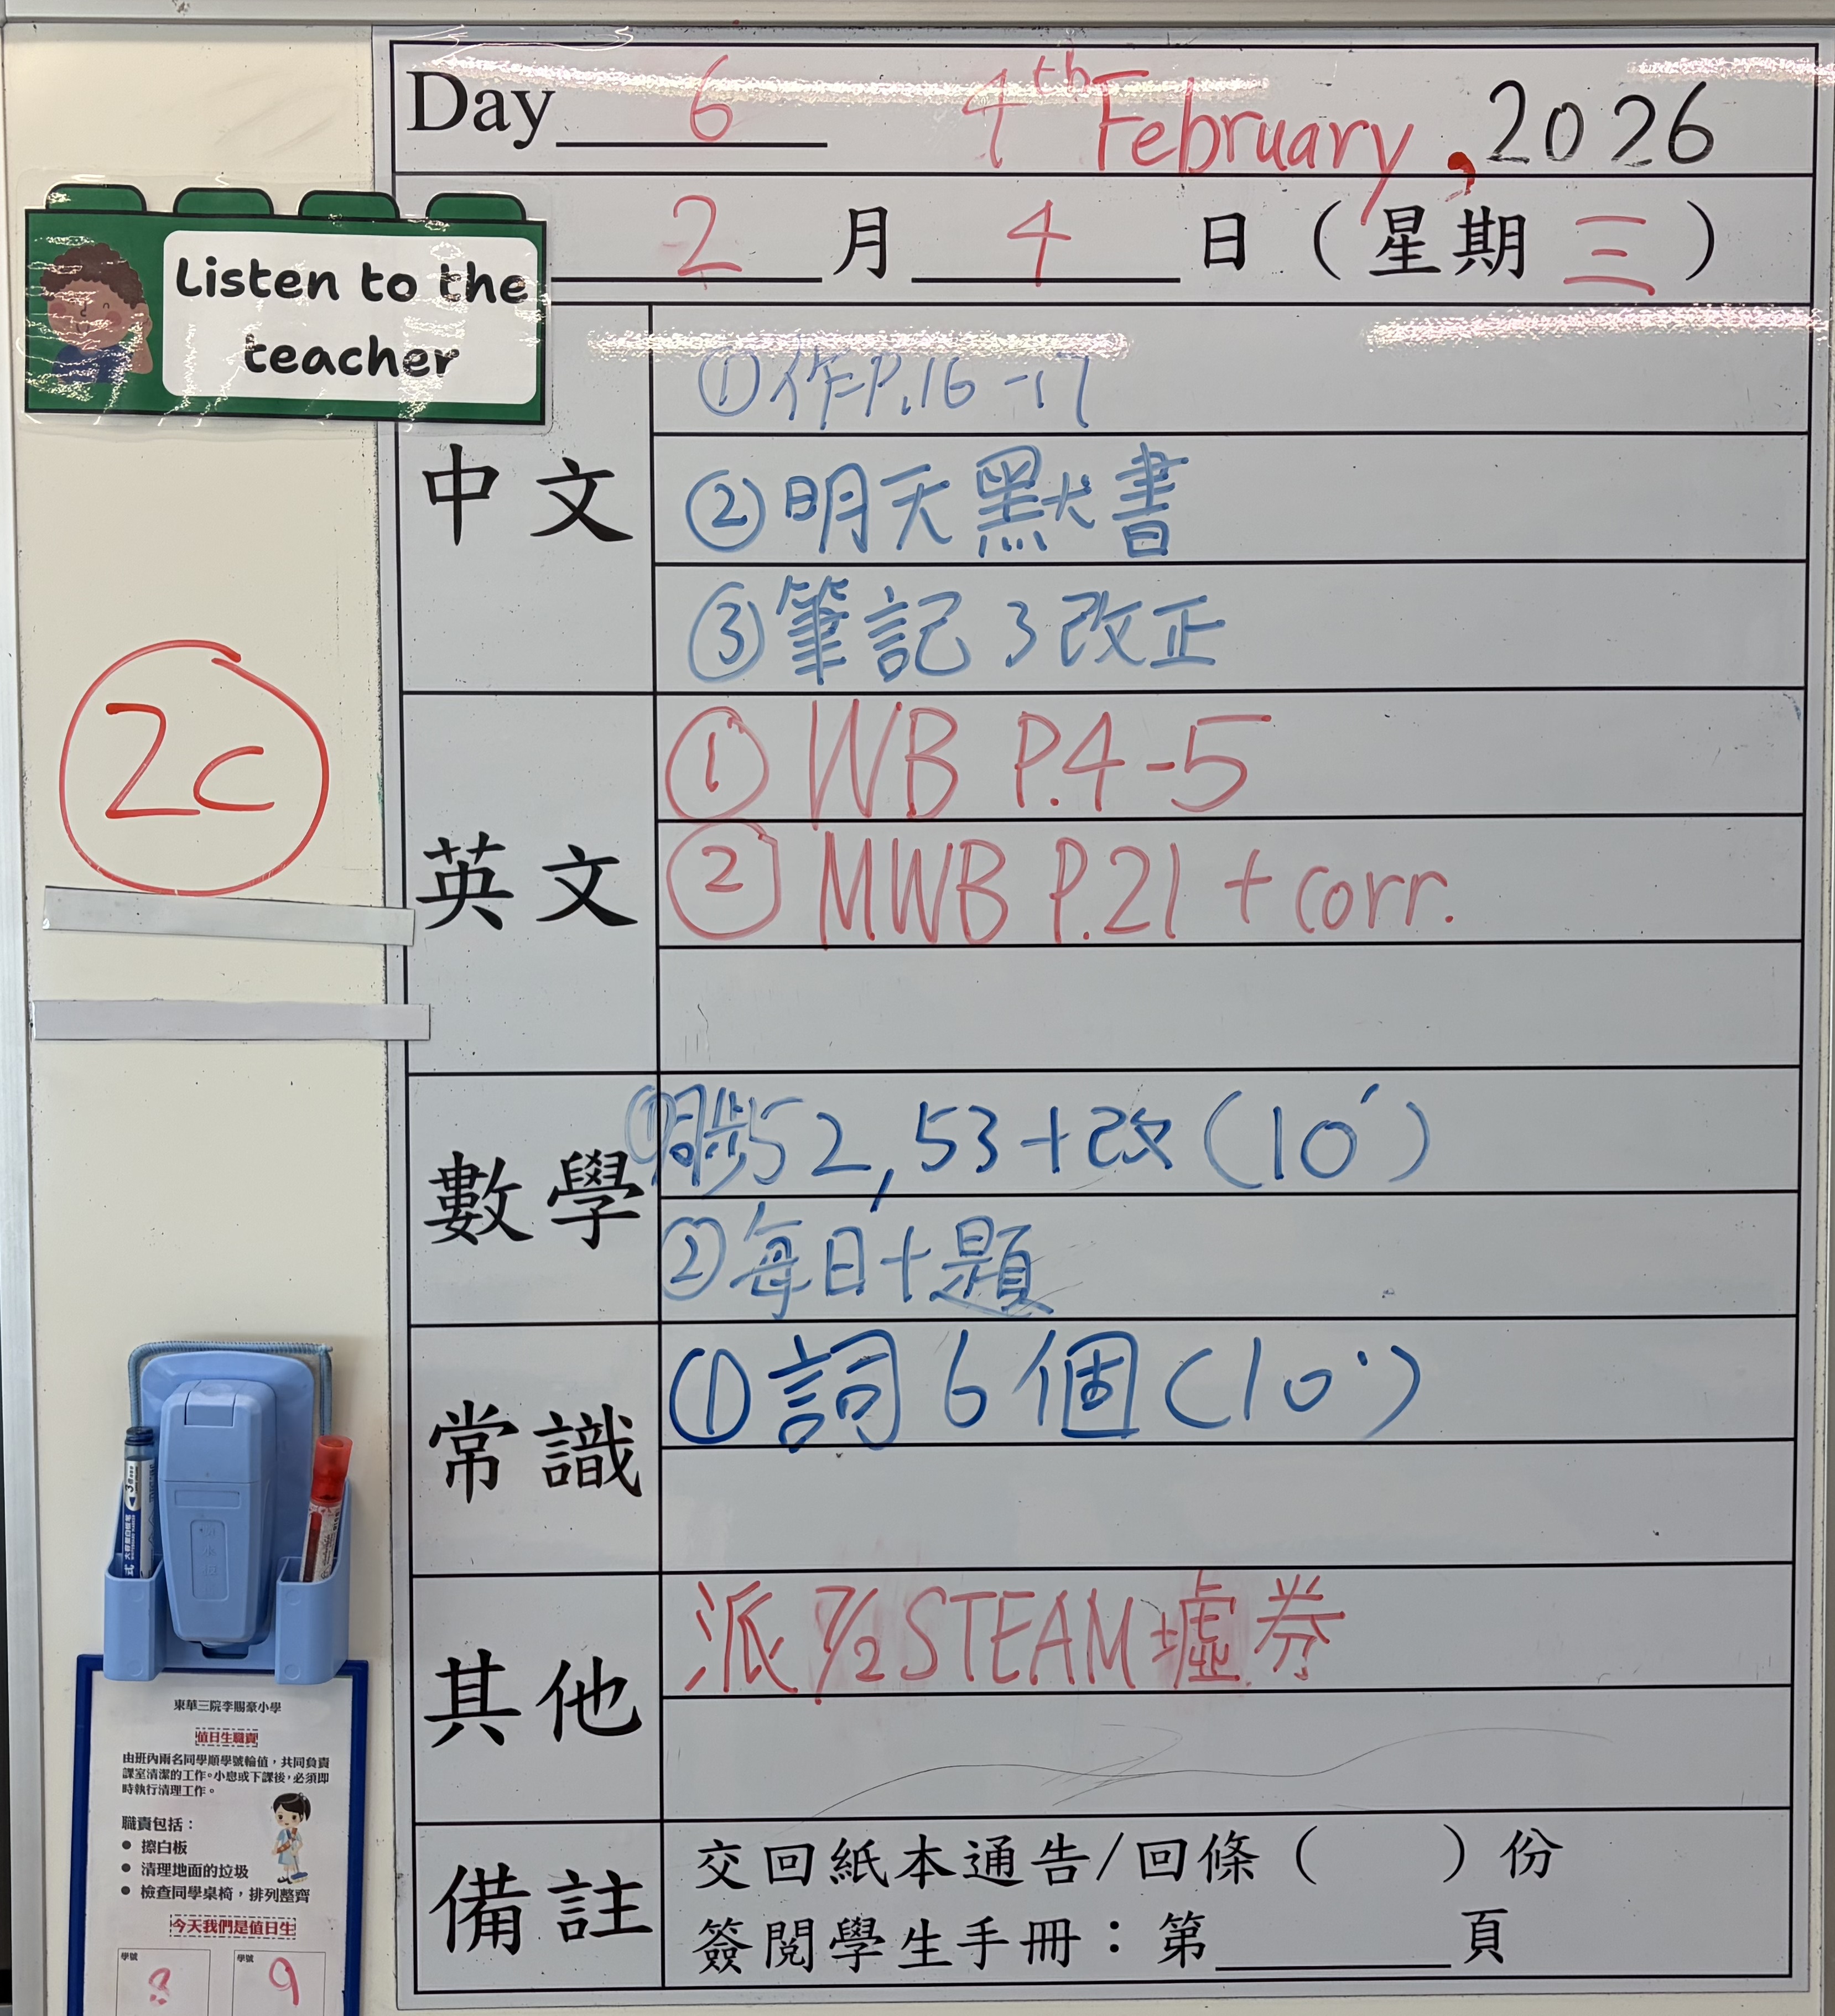 Day 6 4th February, 2026
2月4日（星期三）
Listen to the
teacher
中文
①作P.16-17
②明天默書
③筆記3改正
2C
英文
① WB P.4-5
② MWB P.21 + corr.
數學
52,53+改(10')
②每日十題
常識
①詞6個(10')
其他
派7/2 STEAM墟券
備註
交回紙本通告/回條（ ）份
簽閱學生手冊：第 頁
東華三院李賜豪小學
值日生職責
由班內兩名同學順學號輪值，共同負責
課室清潔的工作。小息或下課後，必須即
時執行清理工作。
職責包括：
● 擦白板
● 清理地面的垃圾
● 檢查同學桌椅，排列整齊
今天我們是值日生
學號 學號
8 9